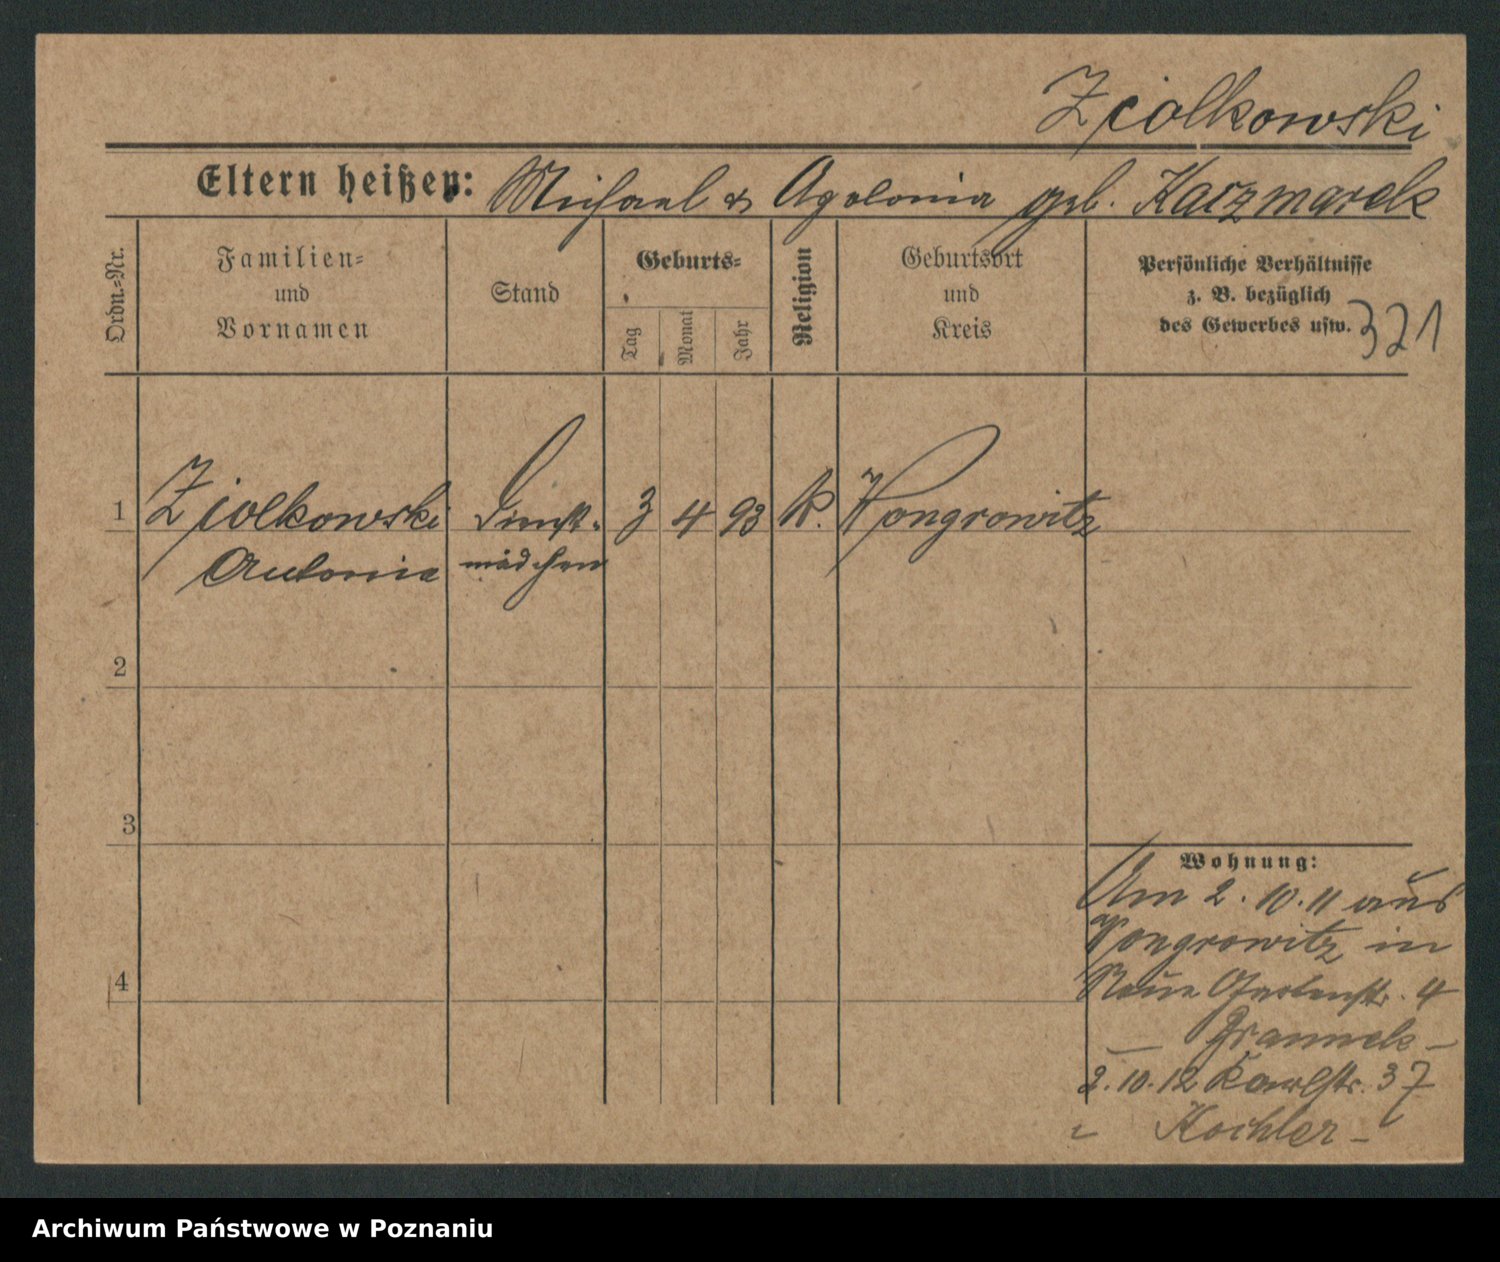 Ziolkowski
Eltern heißen: Michael & Apolonia geb. Kaczmarek
Ordn.-Nr.
Familien-
und
Vornamen
Stand
Geburts-
Tag
Monat
Jahr
Religion
Geburtsort
und
Kreis
Persönliche Verhältnisse
z. B. bezüglich
des Gewerbes usw.
321
1 Ziolkowski Dienst- 3 4 93 k. Wongrowitz
Antonia mädchen
2
3
4
Wohnung:
Am 2. 10. 11 aus
Wongrowitz in
Neue Gartenstr. 4
2. 10. 12 Karlstr. 37
Archiwum Państwowe w Poznaniu